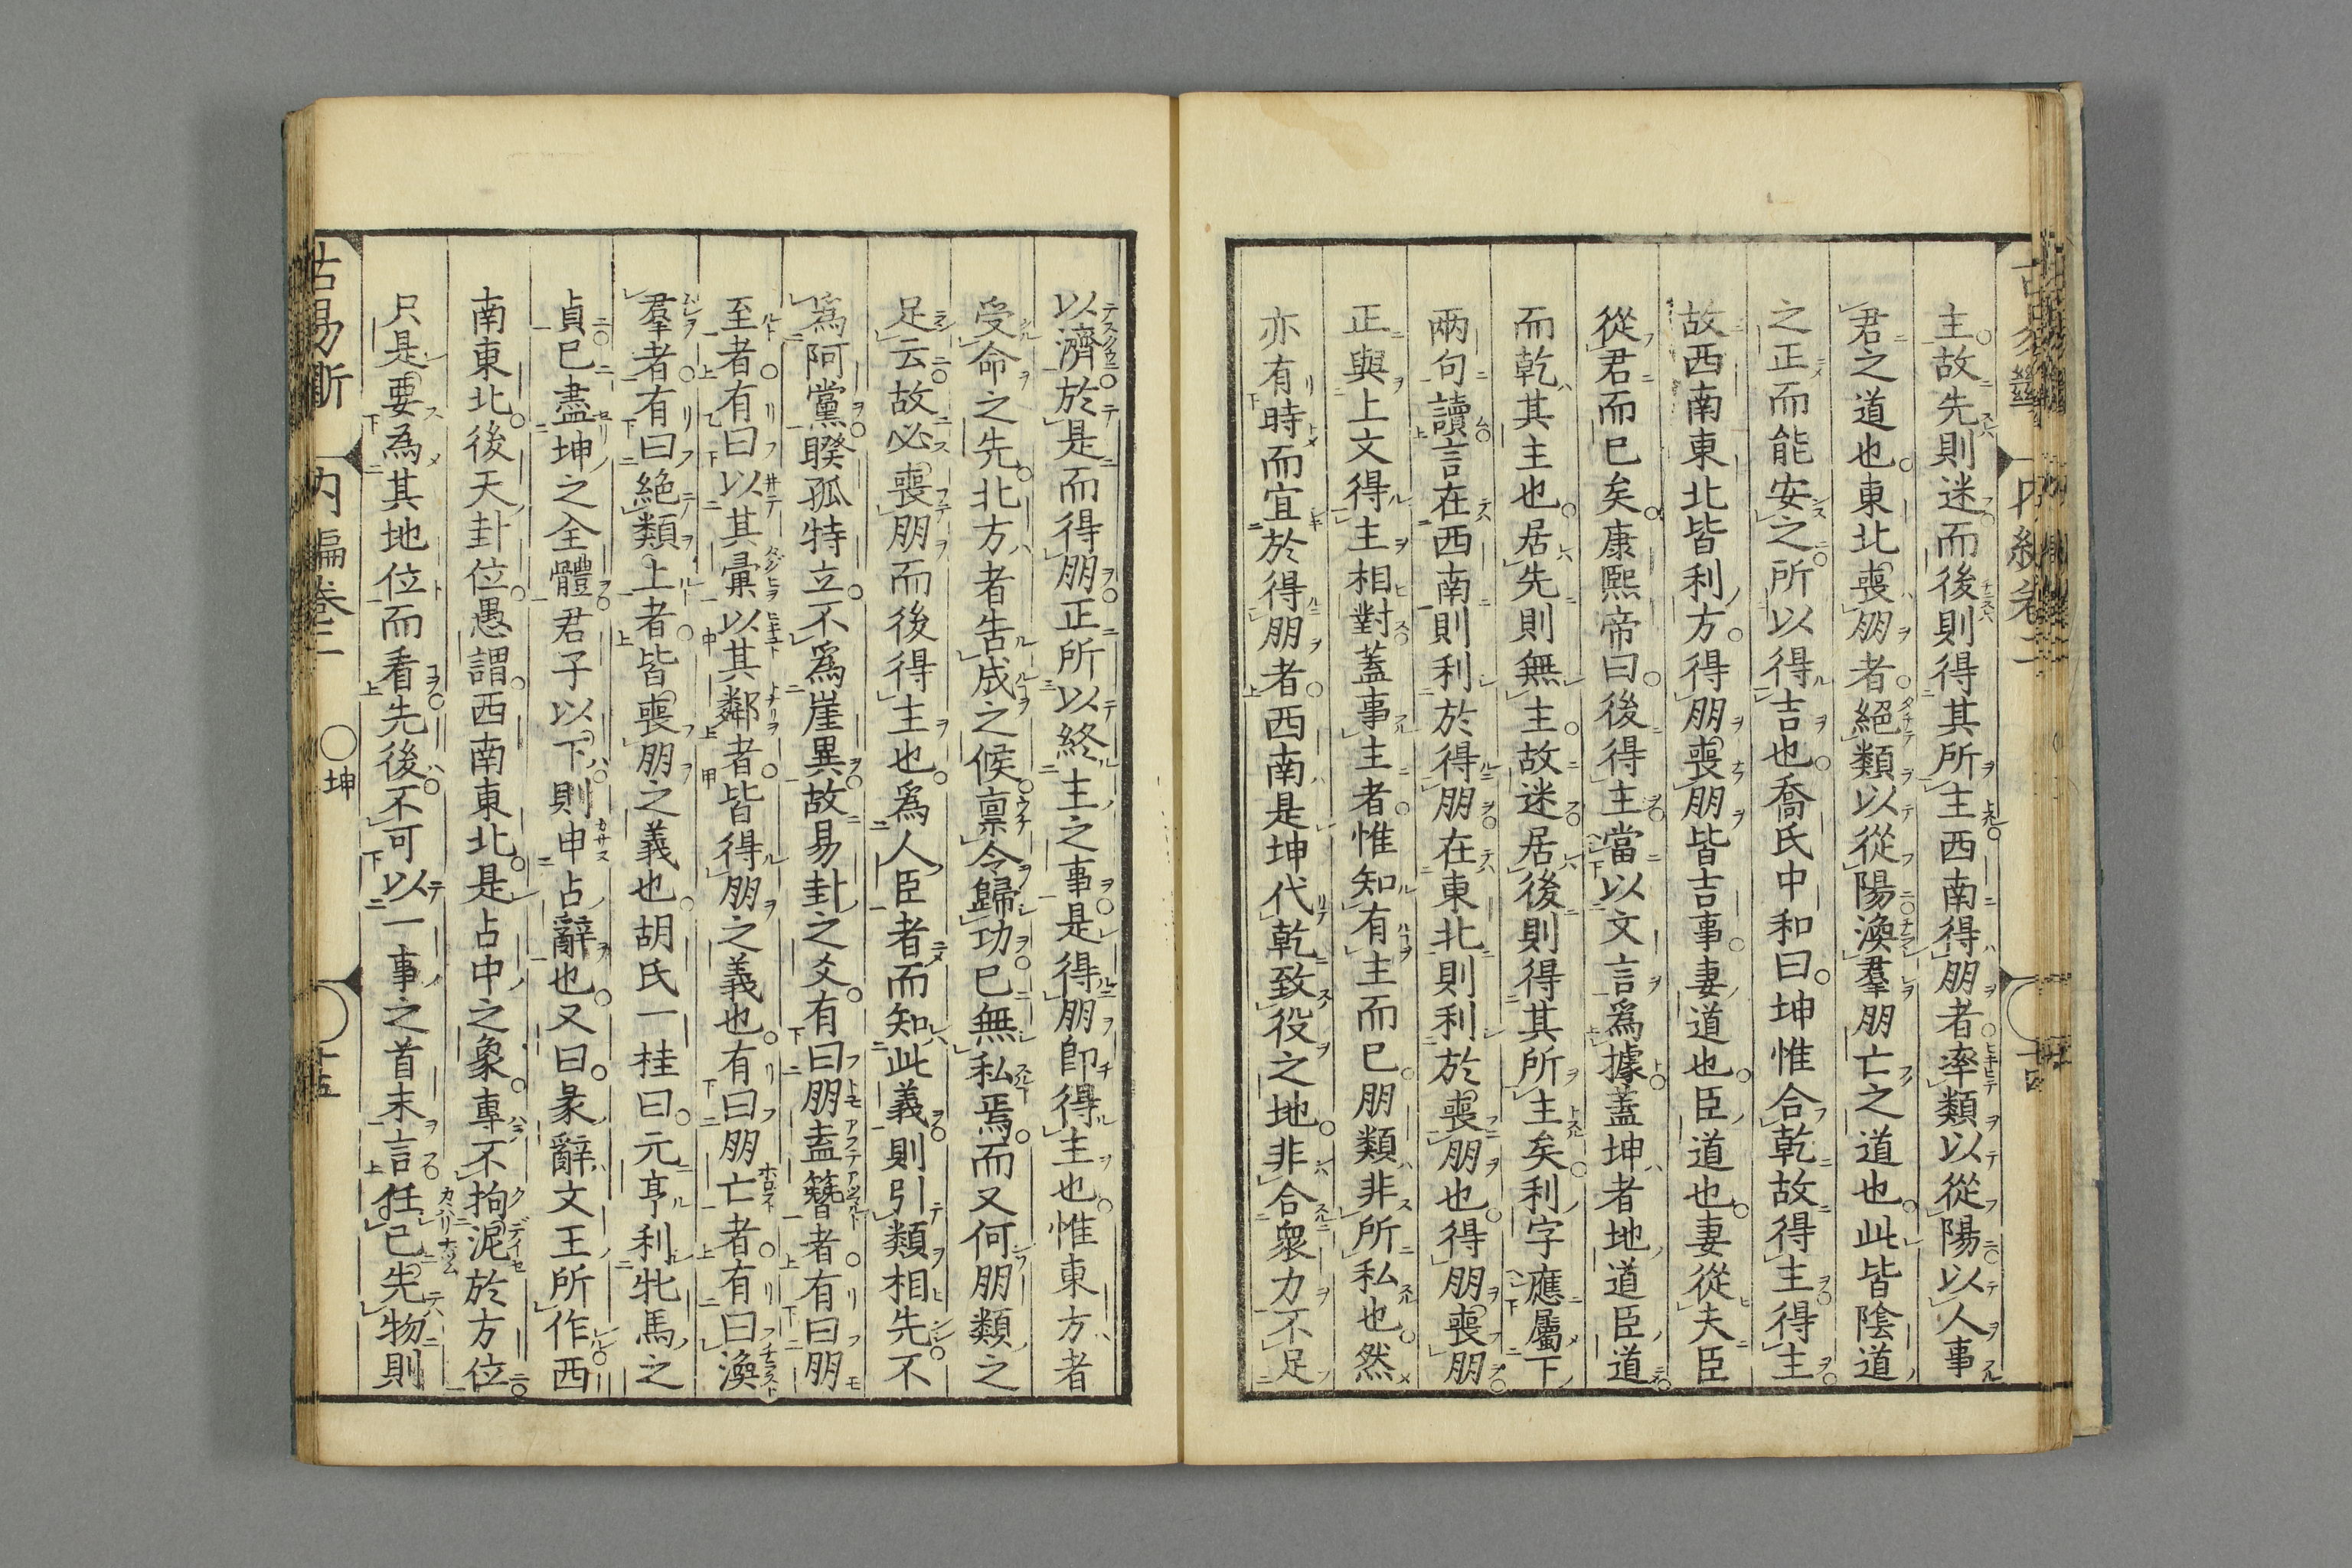 主故先則迷而後則得其所主西南得朋者率類以從陽以人事
君之道也東北喪朋者絕類以從陽渙羣朋亡之道也此皆陰道
之正而能安之所以得吉也喬氏中和曰坤惟合乾故得主得主
故西南東北皆利方得朋喪朋皆吉事妻道也臣道也妻從夫臣
從君而已矣康熙帝曰後得主當以文言爲據蓋坤者地道臣道
而乾其主也居先則無主故迷居後則得其所主矣利字應屬下
兩句讀言在西南則利於得朋在東北則利於喪朋也得朋喪朋
正與上文得主相對蓋事主者惟知有主而已朋類非所私也然
亦有時而宜於得朋者西南是坤代乾致役之地非合衆力不足
以濟於是而得朋正所以終主之事是得朋卽得主也惟東方者
受命之先北方者告成之候禀令歸功已無私焉而又何朋類之
足云故必喪朋而後得主也爲人臣者而知此義則引類相先不
爲阿黨睽孤特立不爲崖異故易卦之爻有曰朋盍簪者有曰朋
至者有曰以其彙以其鄰者皆得朋之義也有曰朋亡者有曰渙
羣者有曰絕類上者皆喪朋之義也胡氏一桂曰元亨利牝馬之
貞已盡坤之全體君子以下則申占辭也又曰彖辭文王所作西
南東北後天卦位愚謂西南東北是占中之象專不拘泥於方位
只是要為其地位而看先後不可以一事之首末言任己先物則
古易斷 内編卷二 ○坤 十五